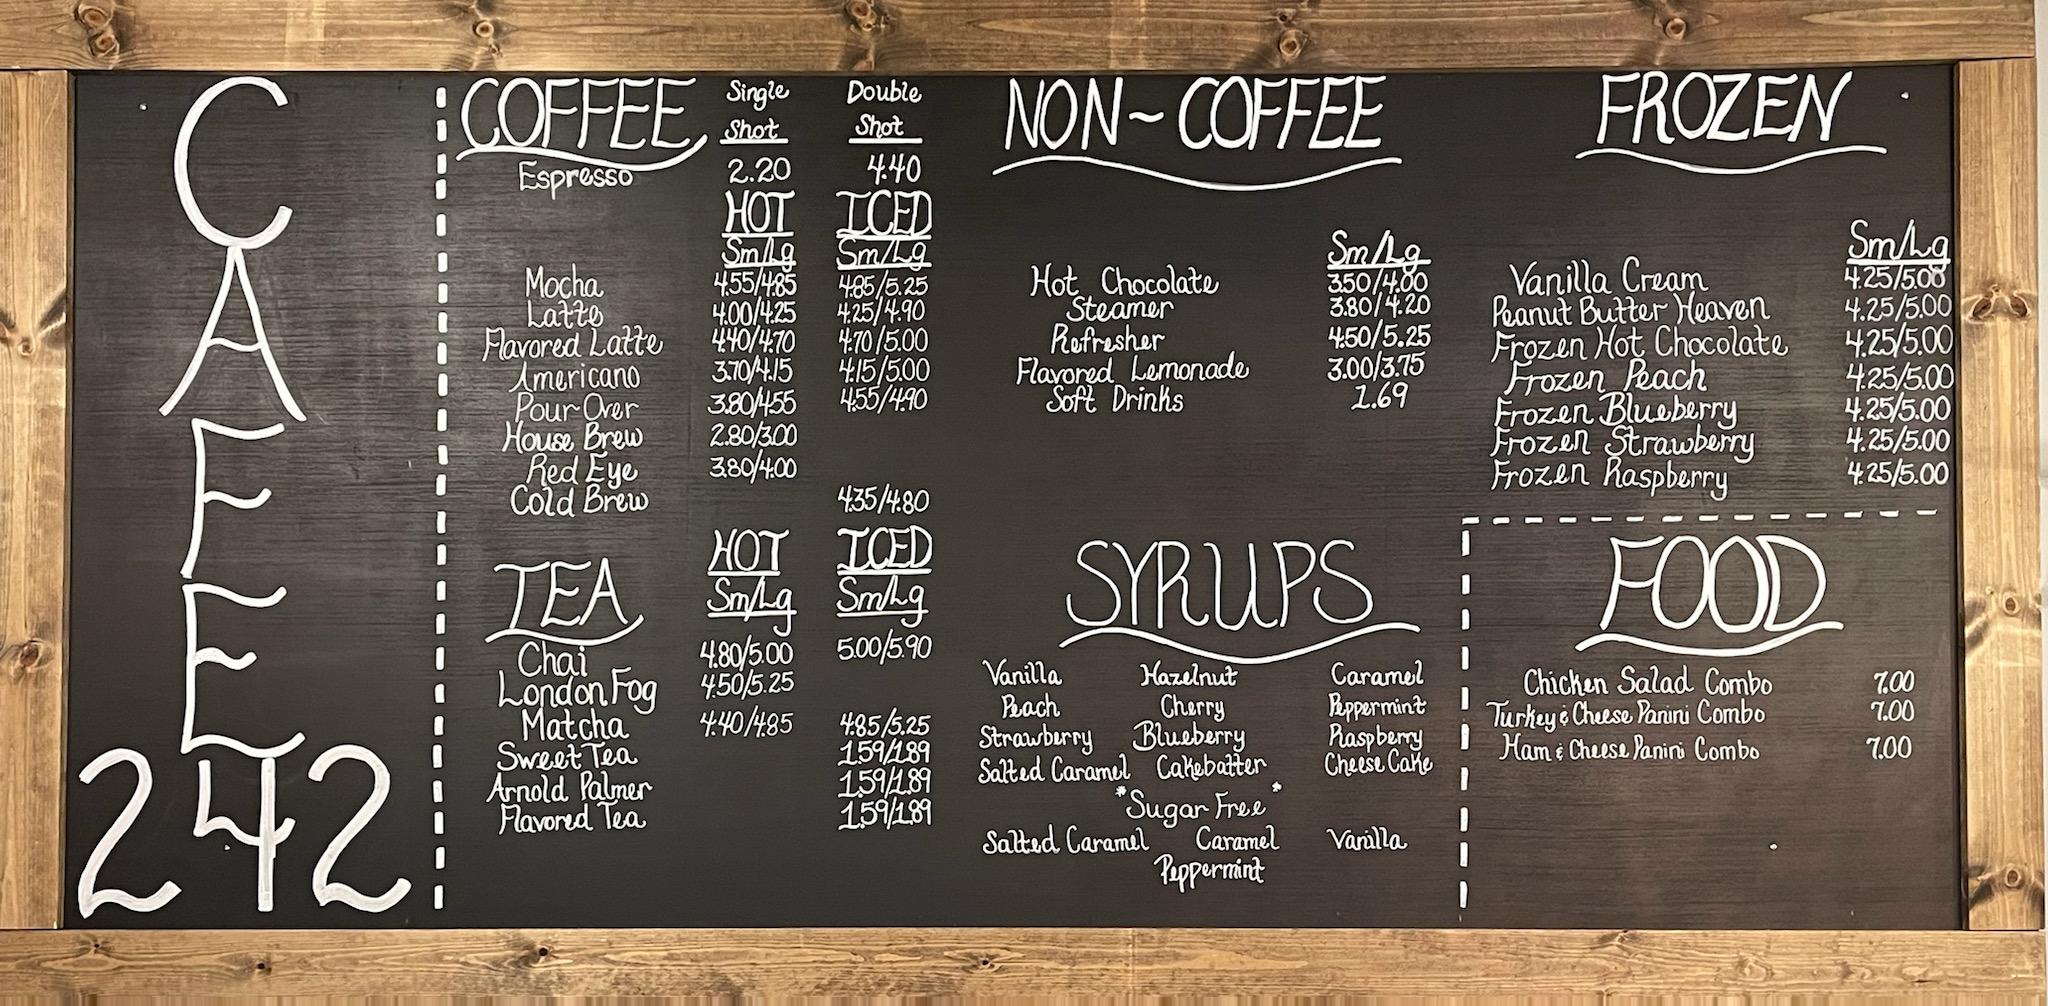 CAFE
242
COFFEE Single Shot Double Shot
Espresso 2.20 4.40
HOT ICED
Sm/Lg Sm/Lg
Mocha 4.55/4.85 4.85/5.25
Latte 4.00/4.25 4.25/4.90
Flavored Latte 4.40/4.70 4.70/5.00
Americano 3.70/4.15 4.15/5.00
Pour Over 3.80/4.55 4.55/4.90
House Brew 2.80/3.00
Red Eye 3.80/4.00
Cold Brew 4.35/4.80
TEA HOT ICED
Sm/Lg Sm/Lg
Chai 4.80/5.00 5.00/5.90
London Fog 4.50/5.25
Matcha 4.40/4.85 4.85/5.25
Sweet Tea 1.59/1.89
Arnold Palmer 1.59/1.89
Flavored Tea 1.59/1.89
NON~COFFEE
Sm/Lg
Hot Chocolate 3.50/4.00
Steamer 3.80/4.20
Refresher 4.50/5.25
Flavored Lemonade 3.00/3.75
Soft Drinks 1.69
SYRUPS
Vanilla Hazelnut Caramel
Peach Cherry Peppermint
Strawberry Blueberry Raspberry
Salted Caramel Cakebatter Cheese Cake
*Sugar Free*
Salted Caramel Caramel Vanilla
Peppermint
FROZEN
Sm/Lg
Vanilla Cream 4.25/5.00
Peanut Butter Heaven 4.25/5.00
Frozen Hot Chocolate 4.25/5.00
Frozen Peach 4.25/5.00
Frozen Blueberry 4.25/5.00
Frozen Strawberry 4.25/5.00
Frozen Raspberry 4.25/5.00
FOOD
Chicken Salad Combo 7.00
Turkey & Cheese Panini Combo 7.00
Ham & Cheese Panini Combo 7.00